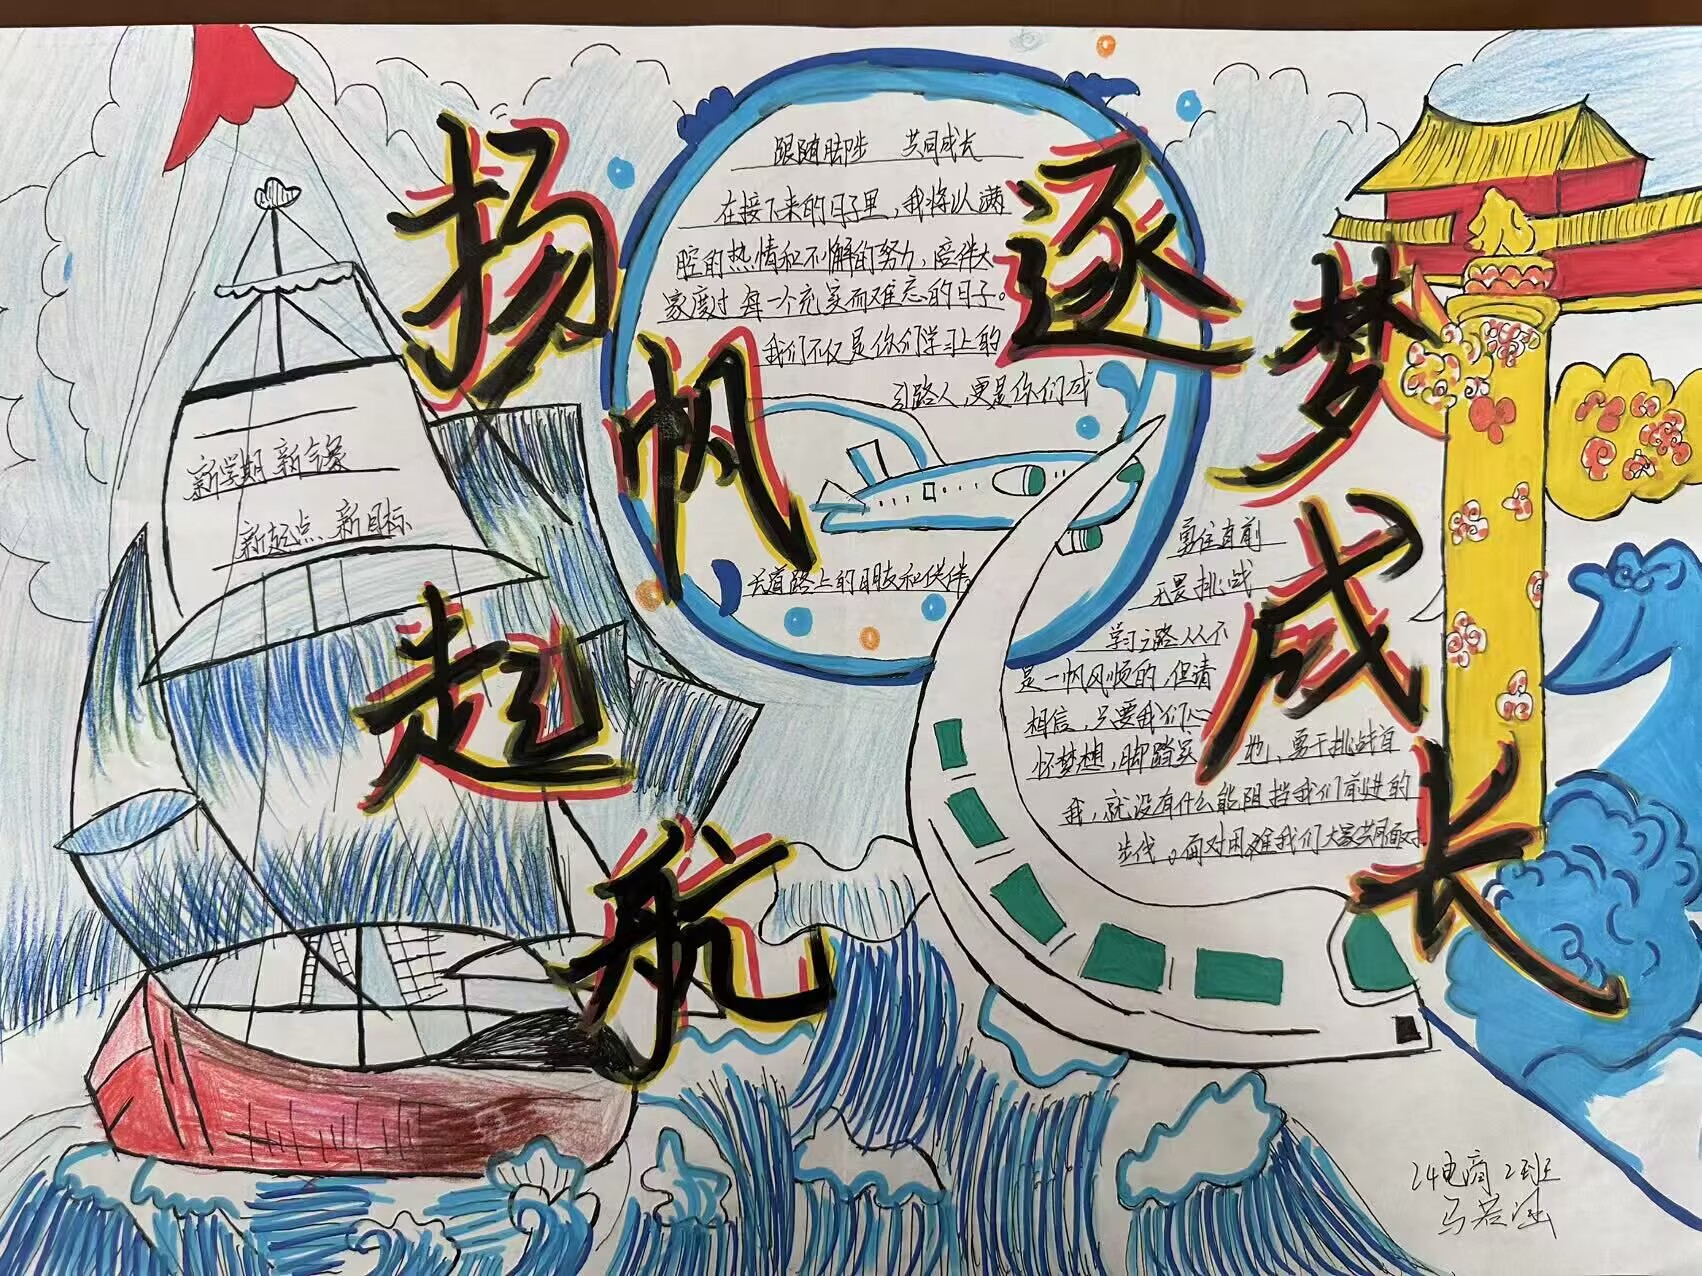 扬帆起航
逐梦成长
新学期 新气象
新起点 新目标
跟随脚步 共同成长
在接下来的日子里,我将以满
腔的热情和不懈的努力,陪伴大
家度过每一个充实而难忘的日子。
我们不仅是你们学习上的
引路人,更是你们成
长道路上的朋友和伙伴。
勇往直前
无畏挑战
学习之路从不
是一帆风顺的 但请
相信,只要我们心
怀梦想,脚踏实地、勇于挑战自
我,就没有什么能阻挡我们前进的
步伐。面对困难我们大家共同面对.
24电商2班
马若涵